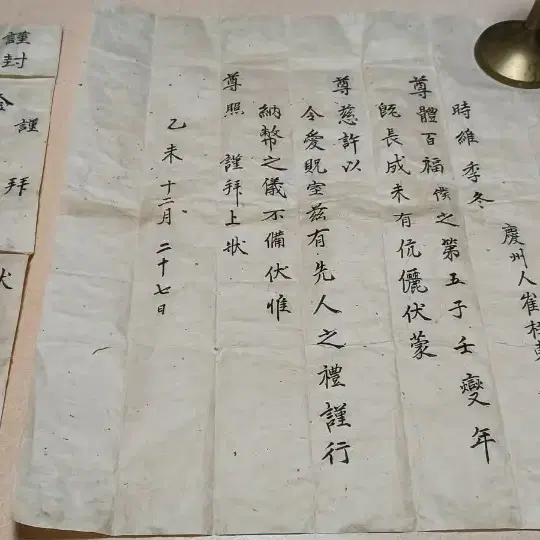 慶州人崔
時維季冬
尊體百福僕之第五子壬燮年
既長成未有伉儷伏蒙
尊慈許以
令愛貺室茲有先人之禮謹行
納幣之儀不備伏惟
尊照 謹拜上狀
乙未 十二月 二十七日
謹封
謹 拜